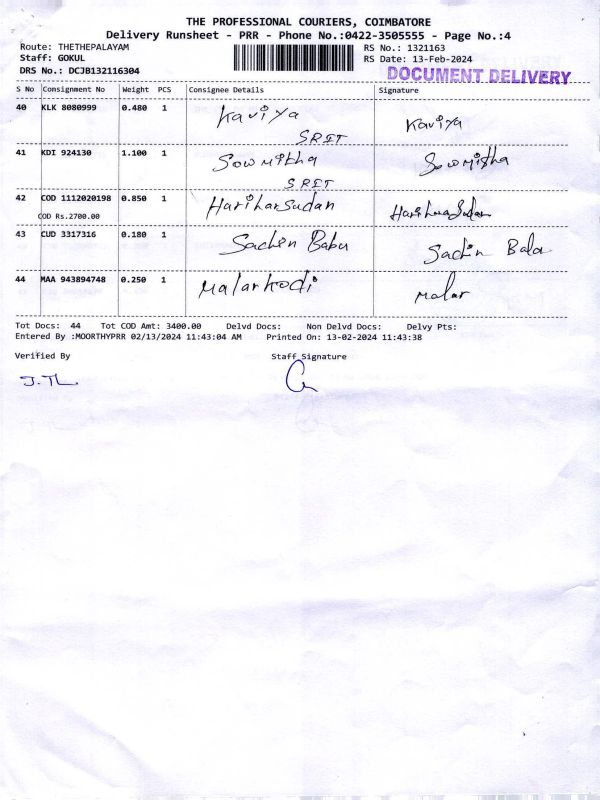 THE PROFESSIONAL COURIERS, COIMBATORE
Delivery Runsheet - PRR - Phone No.:0422-3505555 - Page No.:4
Route: THETHEPALAYAM RS No.: 1321163
Staff: GOKUL RS Date: 13-Feb-2024
DRS No.: DCJB132116304 DOCUMENT DELIVERY
S No Consignment No Weight PCS Consignee Details Signature
40 KLK 8080999 0.480 1 Kaviya Kaviya
SRIT
41 KDI 924130 1.100 1 Sowmitha Sowmitha
SRIT
42 COD 1112020198 0.850 1 Hariharsudan Hariharsudan
COD Rs.2700.00
43 CUD 3317316 0.180 1 Sachin Babu Sachin Babu
44 MAA 943894748 0.250 1 Malarkodi Malar
Tot Docs: 44 Tot COD Amt: 3400.00 Delvd Docs: Non Delvd Docs: Delvy Pts:
Entered By :MOORTHYPRR 02/13/2024 11:43:04 AM Printed On: 13-02-2024 11:43:38
Verified By Staff Signature